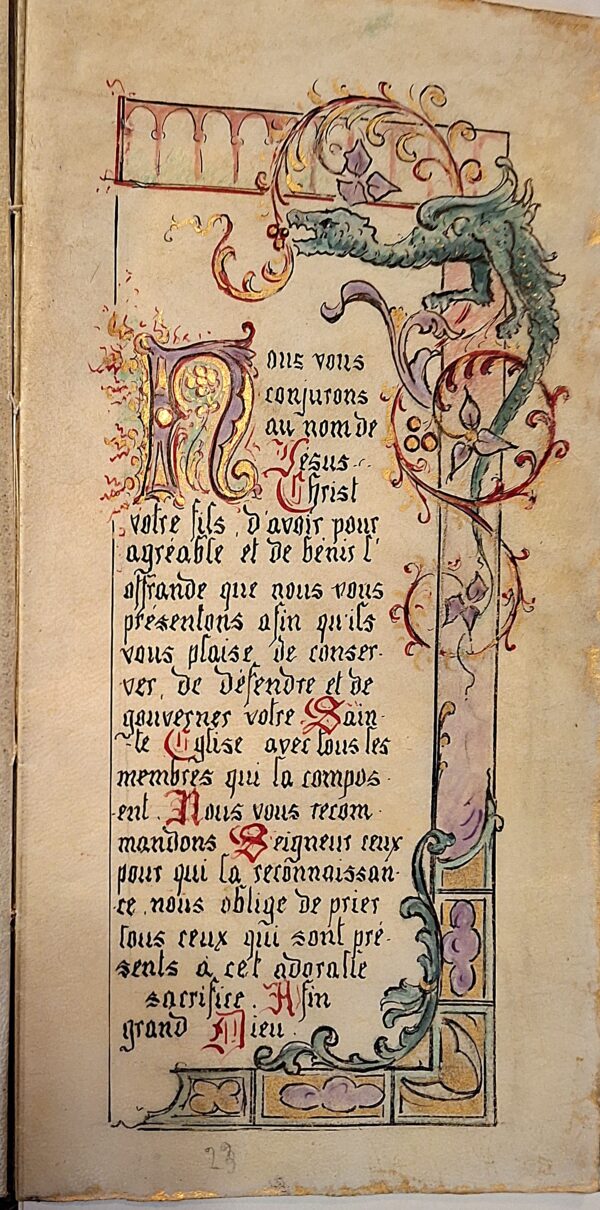 Nous vous
conjurons
au nom de
Jésus-
Christ
votre fils, d'avoir pour
agréable et de bénir l'
offrande que nous vous
présentons afin qu'ils
vous plaise, de conser-
ver, de défendre et de
gouverner votre Sain-
te Eglise avec tous les
membres qui la compos-
ent. Nous vous recom-
mandons Seigneur ceux
pour qui la reconnaissan-
ce, nous oblige de prier
tous ceux qui sont pré-
sents à cet adorable
sacrifice. Afin
grand Dieu.
23